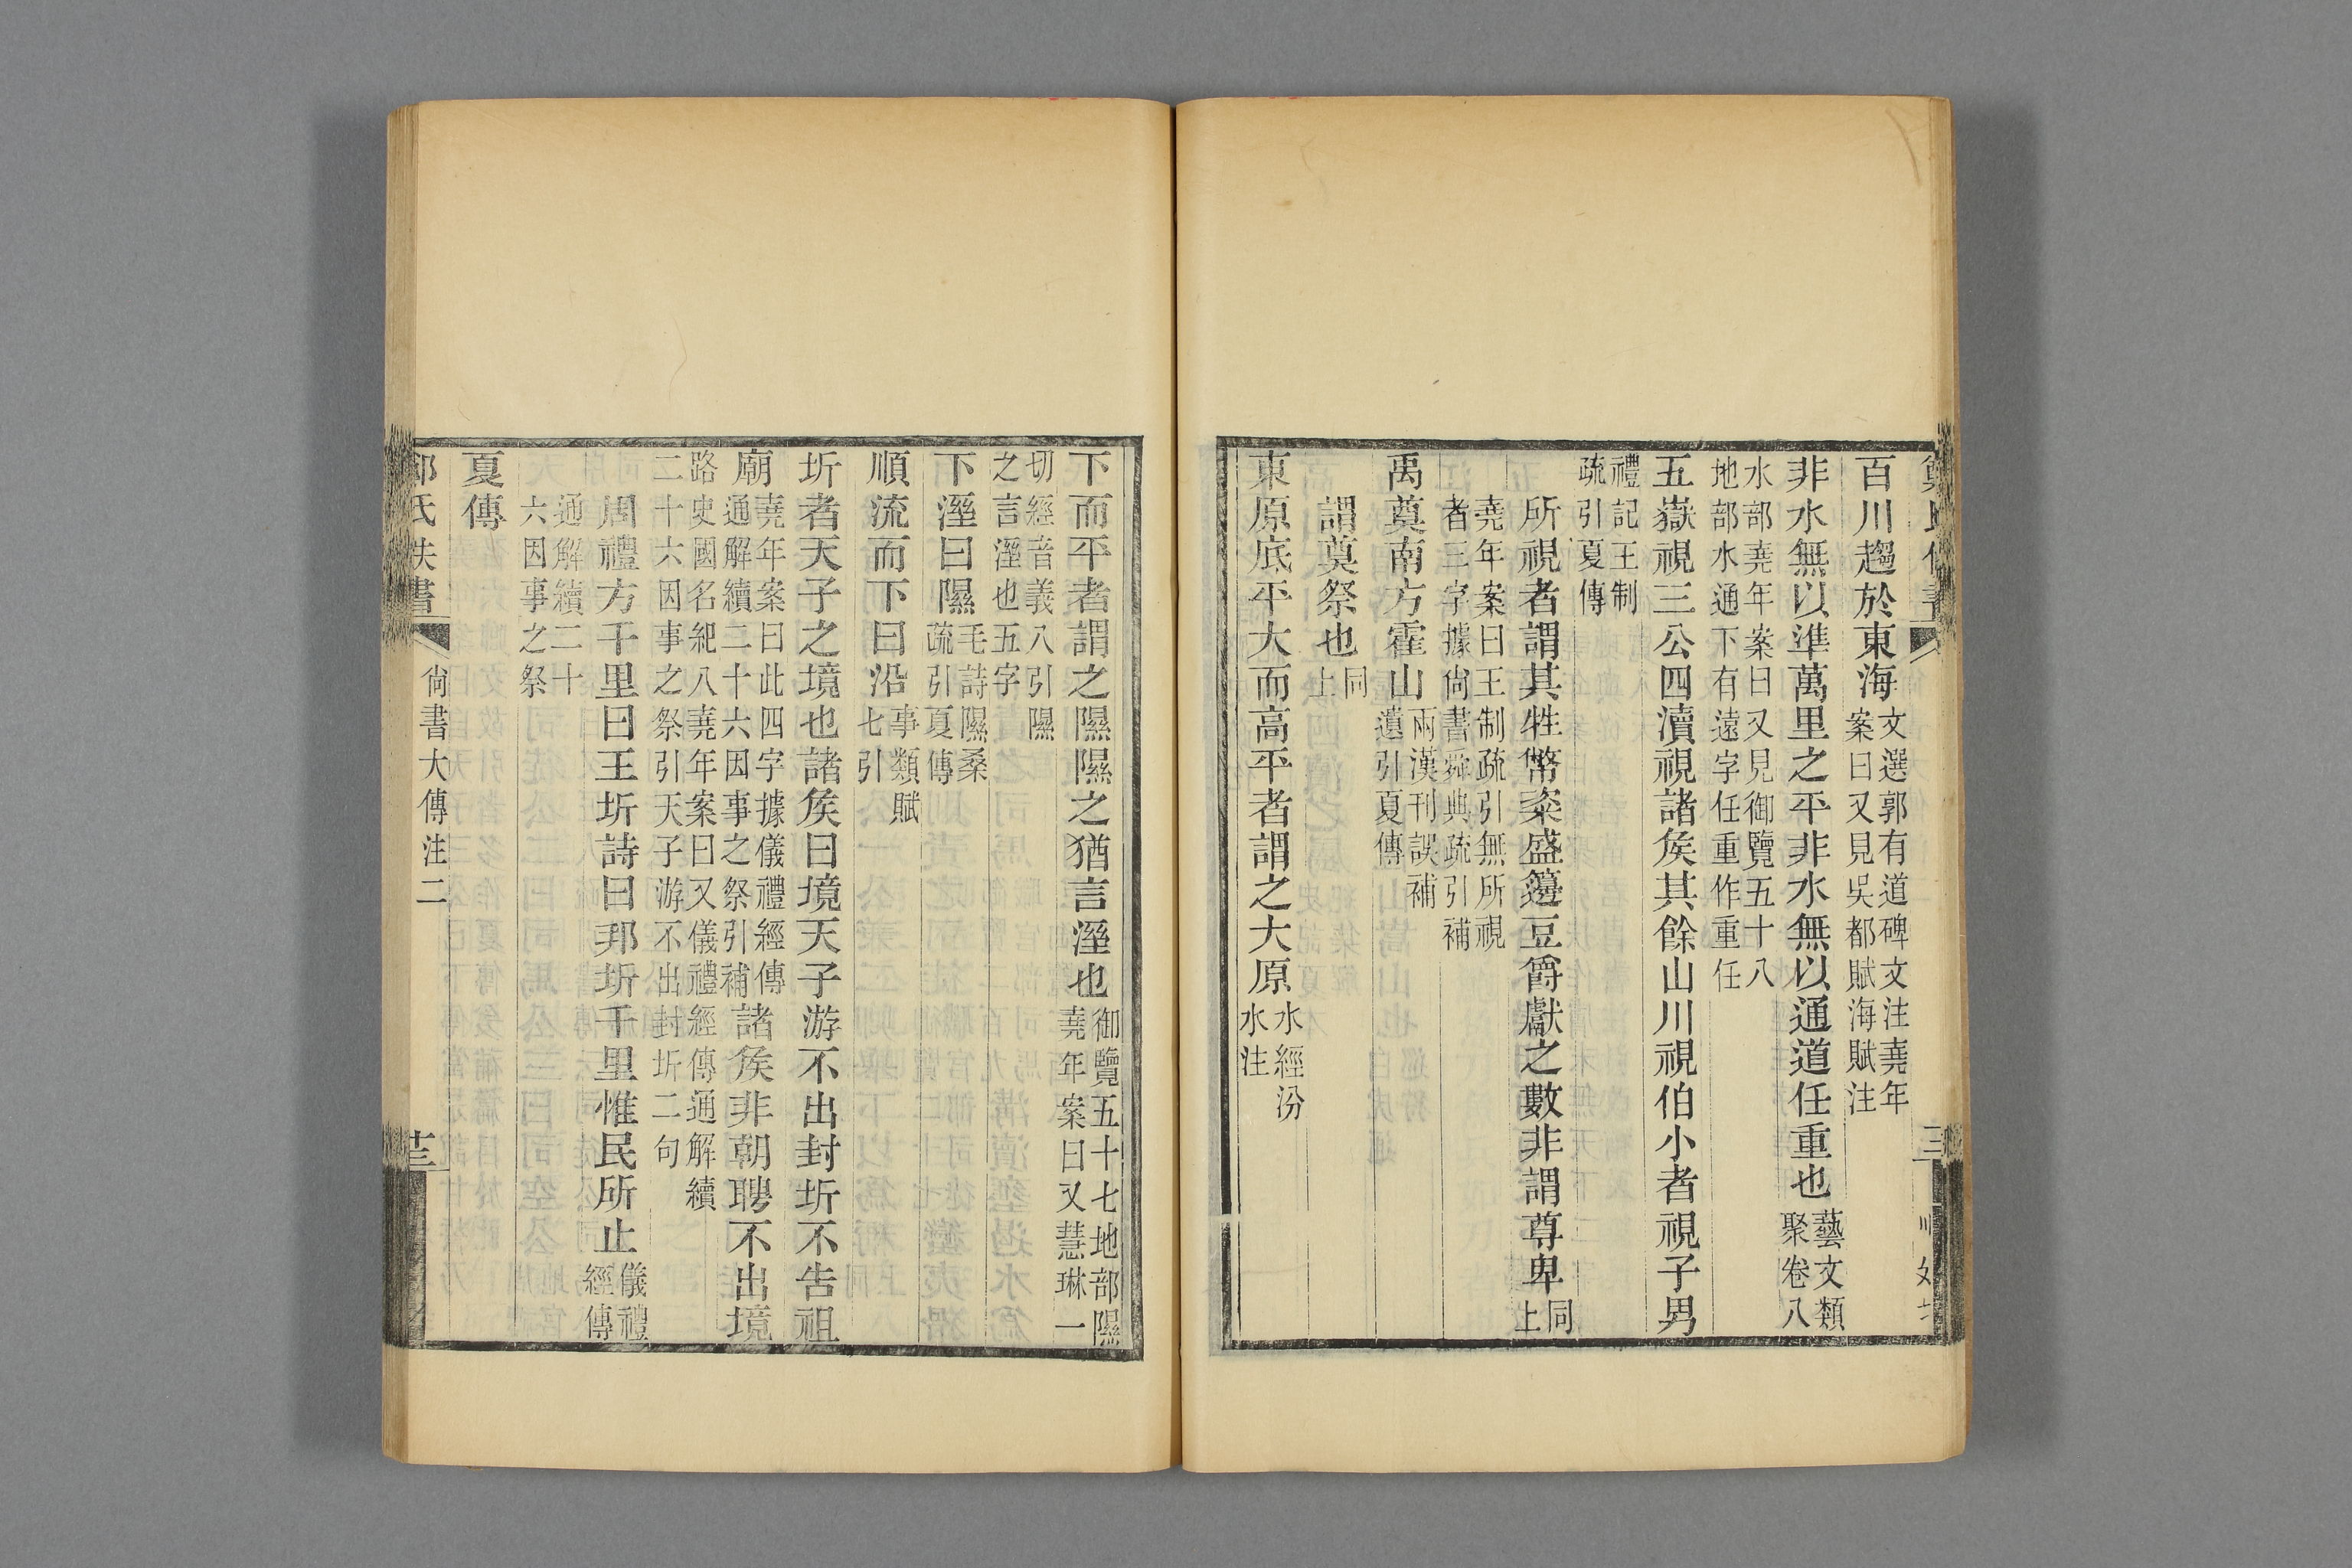 百川趨於東海文選郭有道碑文注堯年案曰又見吳都賦海賦注
非水無以準萬里之平非水無以通道任重也藝文類聚卷八
水部堯年案曰又見御覽五十八地部水通下有遠字任重作重任
五嶽視三公四瀆視諸矦其餘山川視伯小者視子男
禮記王制疏引夏傳
所視者謂其牲幣粢盛籩豆爵獻之數非謂尊卑同上
堯年案曰王制疏引無所視者三字據尙書舜典疏引補
謂奠祭也同上
禹奠南方霍山兩漢刊誤補遺引夏傳
東原底平大而高平者謂之大原水經汾水注
下而平者謂之隰隰之猶言溼也御覽五十七地部隰堯年案曰又慧琳一
切經音義八引隰之言溼也五字
下溼曰隰毛詩隰桑疏引夏傳
順流而下曰沿事類賦七引
圻者天子之境也諸矦曰境天子游不出封圻不告祖
廟堯年案曰此四字據儀禮經傳通解續二十六因事之祭引補諸矦非朝聘不出境
路史國名紀八堯年案曰又儀禮經傳通解續二十六因事之祭引天子游不出封圻二句
周禮方千里曰王圻詩曰邦圻千里惟民所止儀禮經傳
通解續二十六因事之祭
夏傳
尙書大傳注二